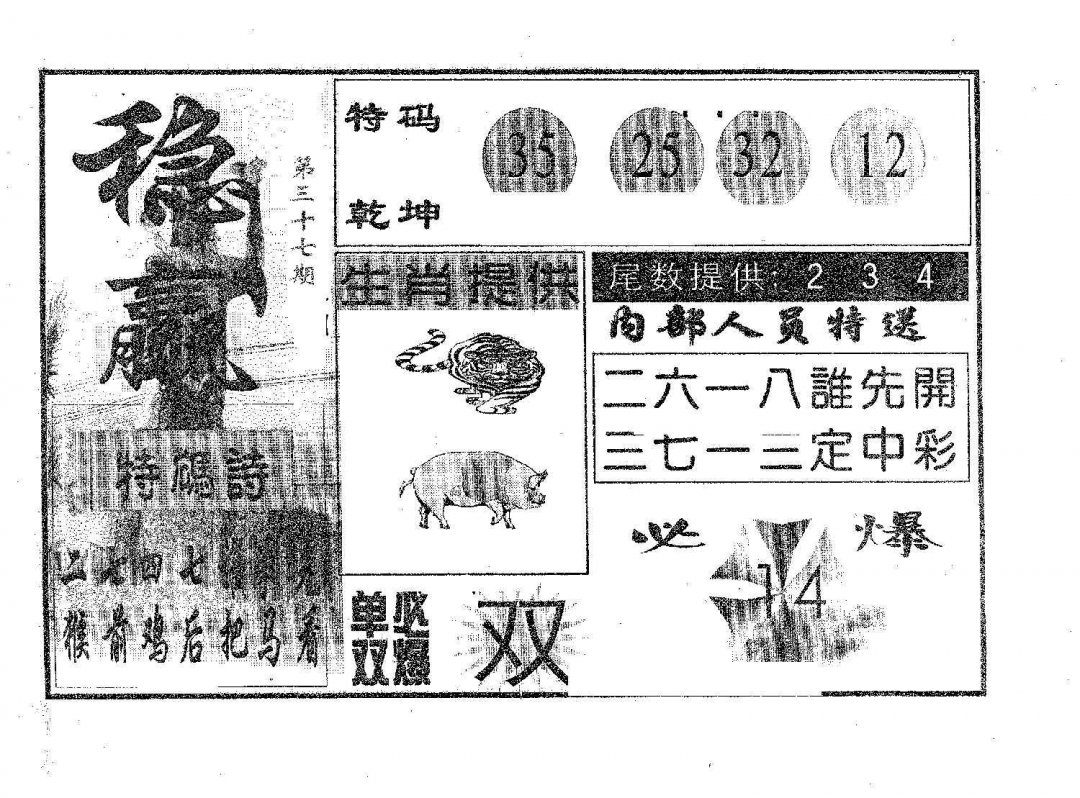 稳赢
第三十七期
特码诗
二七四七
猴前鸡后把马看
特码
乾坤
35 25 32 12
生肖提供
单双必爆
双
尾数提供: 2 3 4
内部人员特送
二六一八誰先開
三七一三定中彩
必爆
14